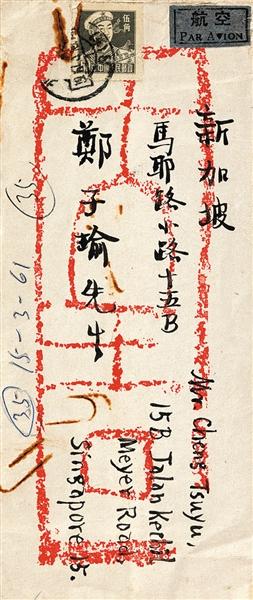 伍角
航空
PAR AVION
新加坡
馬耶路小路十五B
鄭子瑜先生
Mr Cheng Tsuyu,
15B Jalan Kechil
Meyer Road,
Singapore 15.
35
35
15-3-61